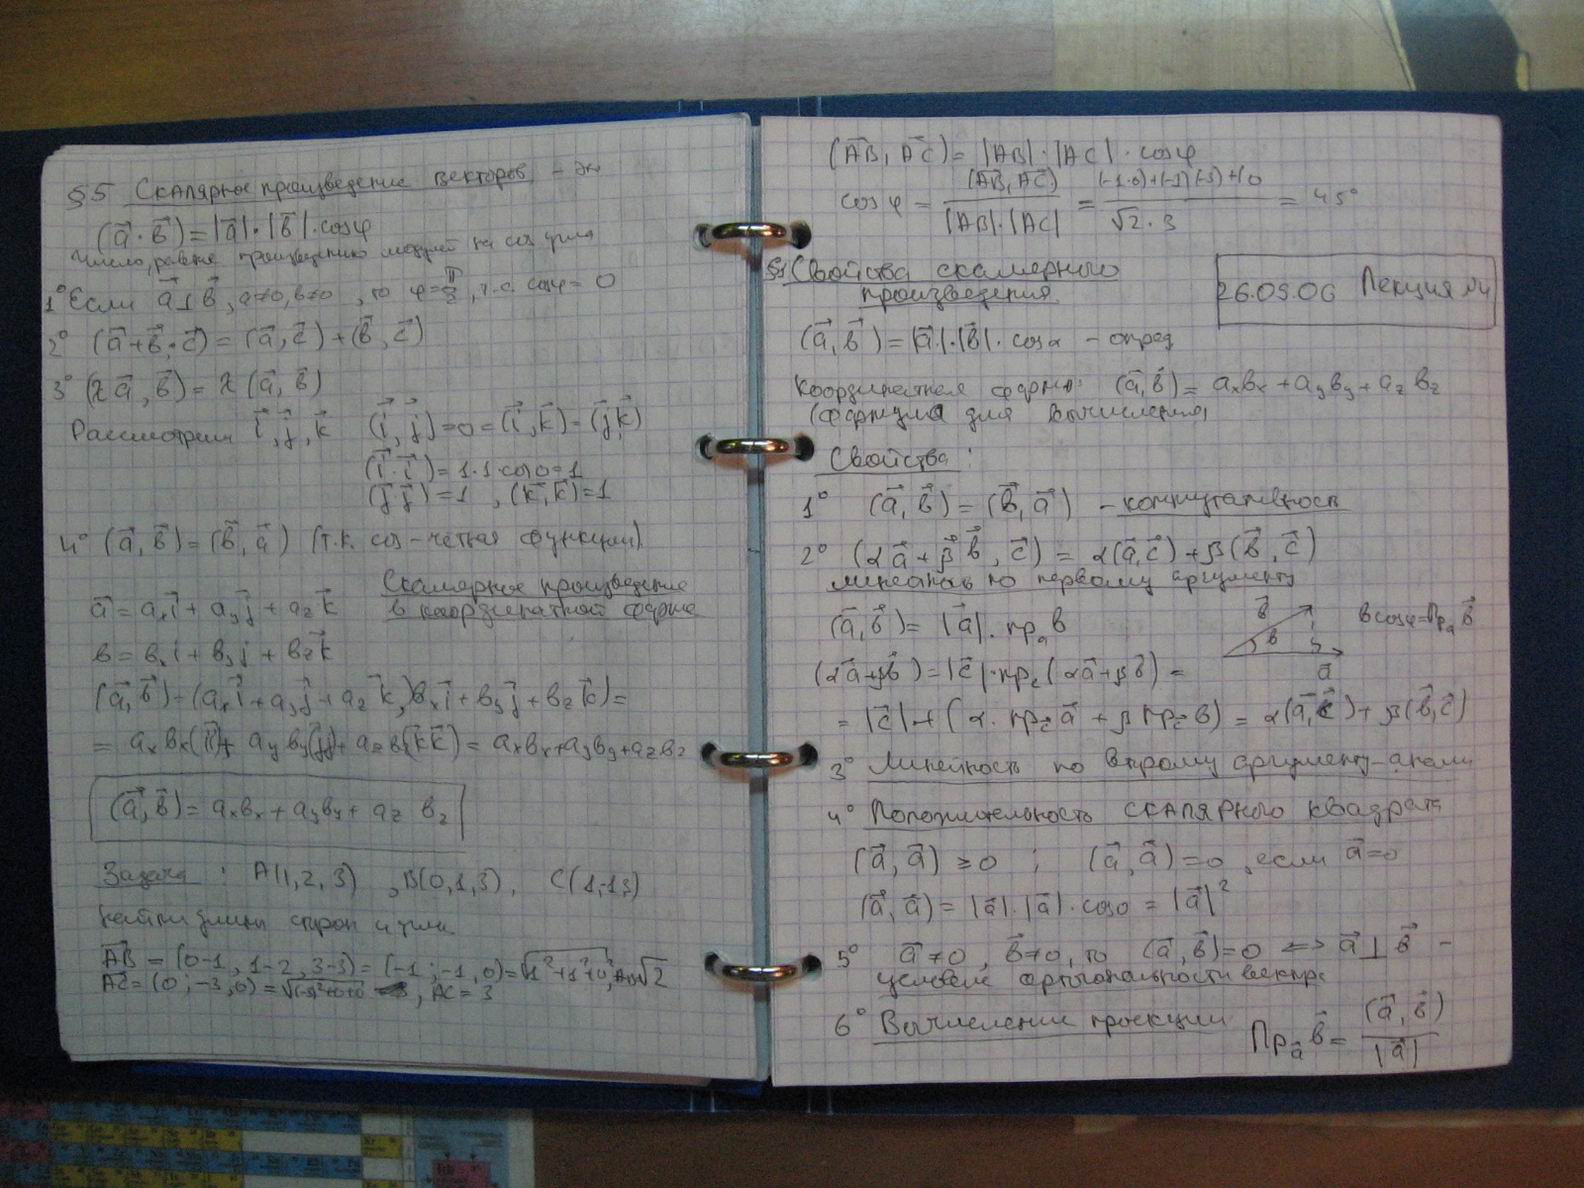 §5 Скалярное произведение векторов – это
(a⃗ · b⃗) = |a⃗|·|b⃗|·cosφ
число, равное произведению модулей на cos угла
1° Если a⃗ ⊥ b⃗, a≠0, b≠0, то φ = π/2, т.е. cosφ = 0
2° (a⃗ + b⃗, c⃗) = (a⃗, c⃗) + (b⃗, c⃗)
3° (λa⃗, b⃗) = λ(a⃗, b⃗)
Рассмотрим i⃗, j⃗, k⃗ (i⃗, j⃗) = 0 = (i⃗, k⃗) = (j⃗, k⃗)
(i⃗ · i⃗) = 1·1 cos0 = 1
(j⃗ j⃗) = 1, (k⃗, k⃗) = 1
4° (a⃗, b⃗) = (b⃗, a⃗) (т.к. cos – чётная функция)
Скалярное произведение
в координатной форме
a⃗ = aₓi⃗ + a_y j⃗ + a_z k⃗
b = bₓi + b_y j + b_z k⃗
(a⃗, b⃗) = (aₓi⃗ + a_y j⃗ + a_z k⃗, bₓi⃗ + b_y j⃗ + b_z k⃗) =
= aₓbₓ(i⃗i⃗) + a_y b_y(j⃗j⃗) + a_z b_z(k⃗k⃗) = aₓbₓ + a_y b_y + a_z b_z
(a⃗, b⃗) = aₓbₓ + a_y b_y + a_z b_z
Задача: A(1, 2, 3), B(0, 1, 3), C(1,-1,3)
Найти длины сторон и углы
A͞B = (0-1, 1-2, 3-3) = (-1; -1, 0) = √(1² + 1² + 0²), AB √2
A͞C = (0; -3, 0) = √((-3)²+0+0), AC = 3
(A͞B, A͞C) = |AB|·|AC|·cosφ
cosφ = (A͞B, A͞C) / (|AB|·|AC|) = ((-1·0)+(-1)(-3)+0) / (√2·3) = 45°
§1 Свойства скалярного
произведения
26.09.06 Лекция №4
(a⃗, b⃗) = |a⃗|·|b⃗|·cosα – опред
Координатная форма: (a⃗, b⃗) = aₓbₓ + a_y b_y + a_z b_z
(формула для вычисления)
Свойства:
1° (a⃗, b⃗) = (b⃗, a⃗) – коммутативность
2° (αa⃗ + βb⃗, c⃗) = α(a⃗, c⃗) + β(b⃗, c⃗)
линейность по первому аргументу
(a⃗, b⃗) = |a⃗|·пр_a b
b⃗ a⃗ b cosφ = Пр_a b⃗
(αa⃗ + βb⃗) = |c⃗|·пр_c (αa⃗ + βb⃗) =
= |c⃗| + (α·пр_c⃗ a⃗ + β пр_c⃗ b) = α(a⃗, c⃗) + β(b⃗, c⃗)
3° Линейность по второму аргументу – аналог
4° Положительность скалярного квадрата
(a⃗, a⃗) ≥ 0 ; (a⃗, a⃗) = 0, если a⃗ = 0
(a⃗, a⃗) = |a⃗|·|a⃗|·cos0 = |a⃗|²
5° a⃗ ≠ 0, b⃗ ≠ 0, то (a⃗, b⃗) = 0 ⟺ a⃗ ⊥ b⃗ –
условие ортогональности вектров
6° Вычисление проекции Пр_a⃗ b⃗ = (a⃗, b⃗) / |a⃗|